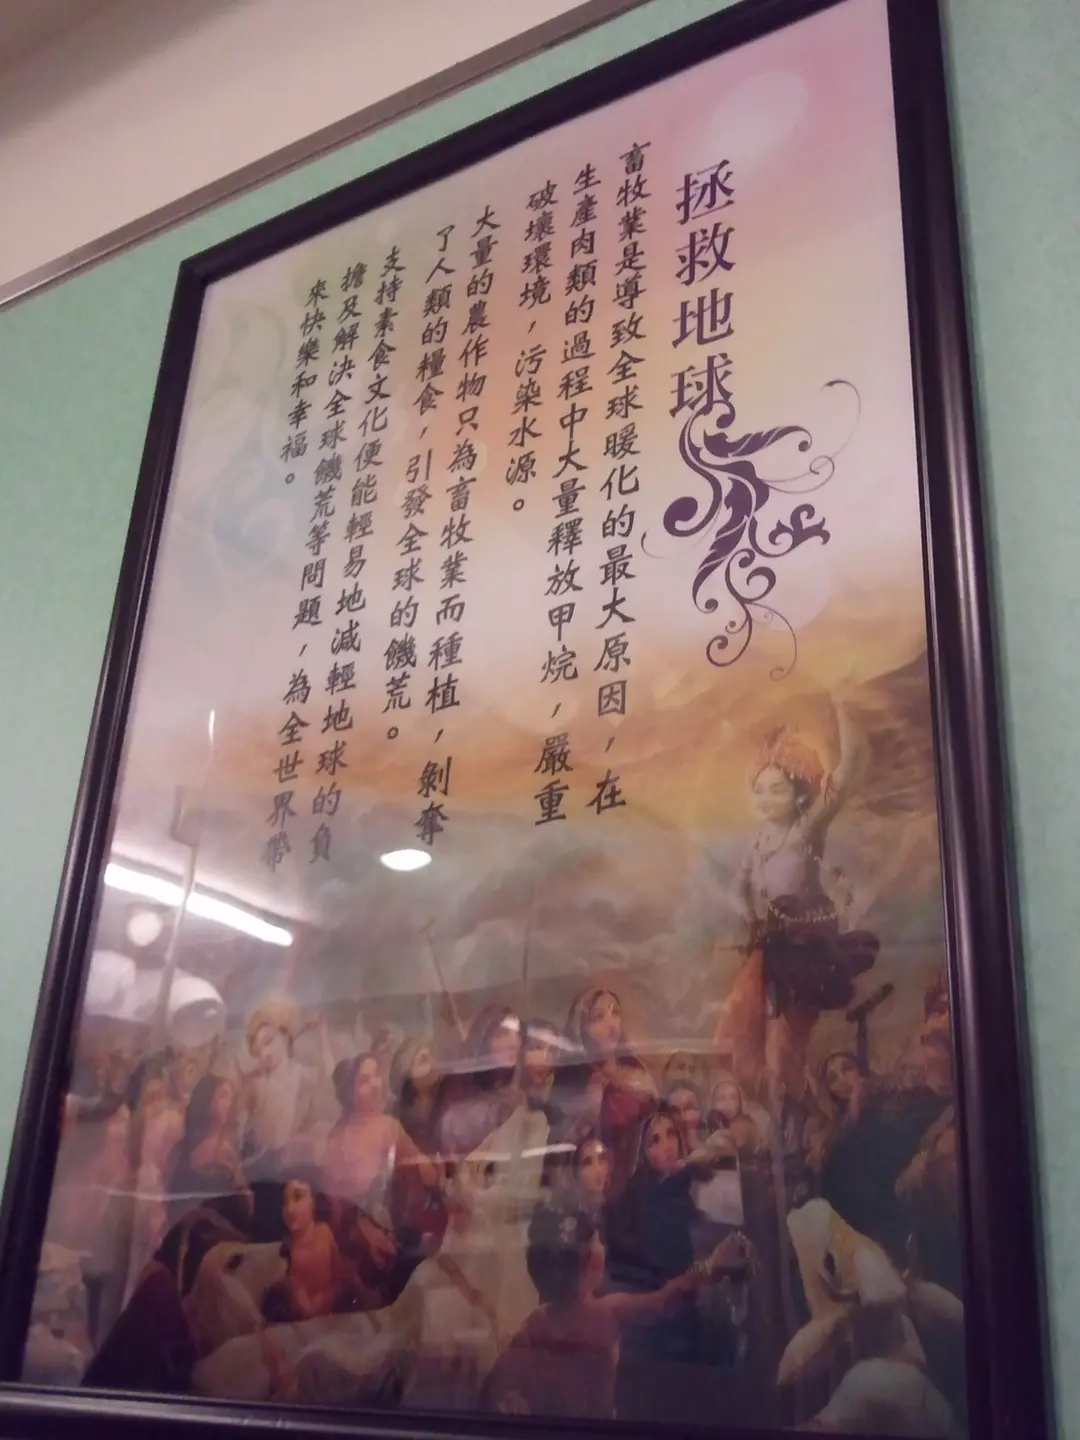 拯救地球
畜牧業是導致全球暖化的最大原因，在
生產肉類的過程中大量釋放甲烷，嚴重
破壞環境，污染水源。
大量的農作物只為畜牧業而種植，剝奪
了人類的糧食，引發全球的饑荒。
支持素食文化便能輕易地減輕地球的負
擔及解決全球饑荒等問題，為全世界帶
來快樂和幸福。